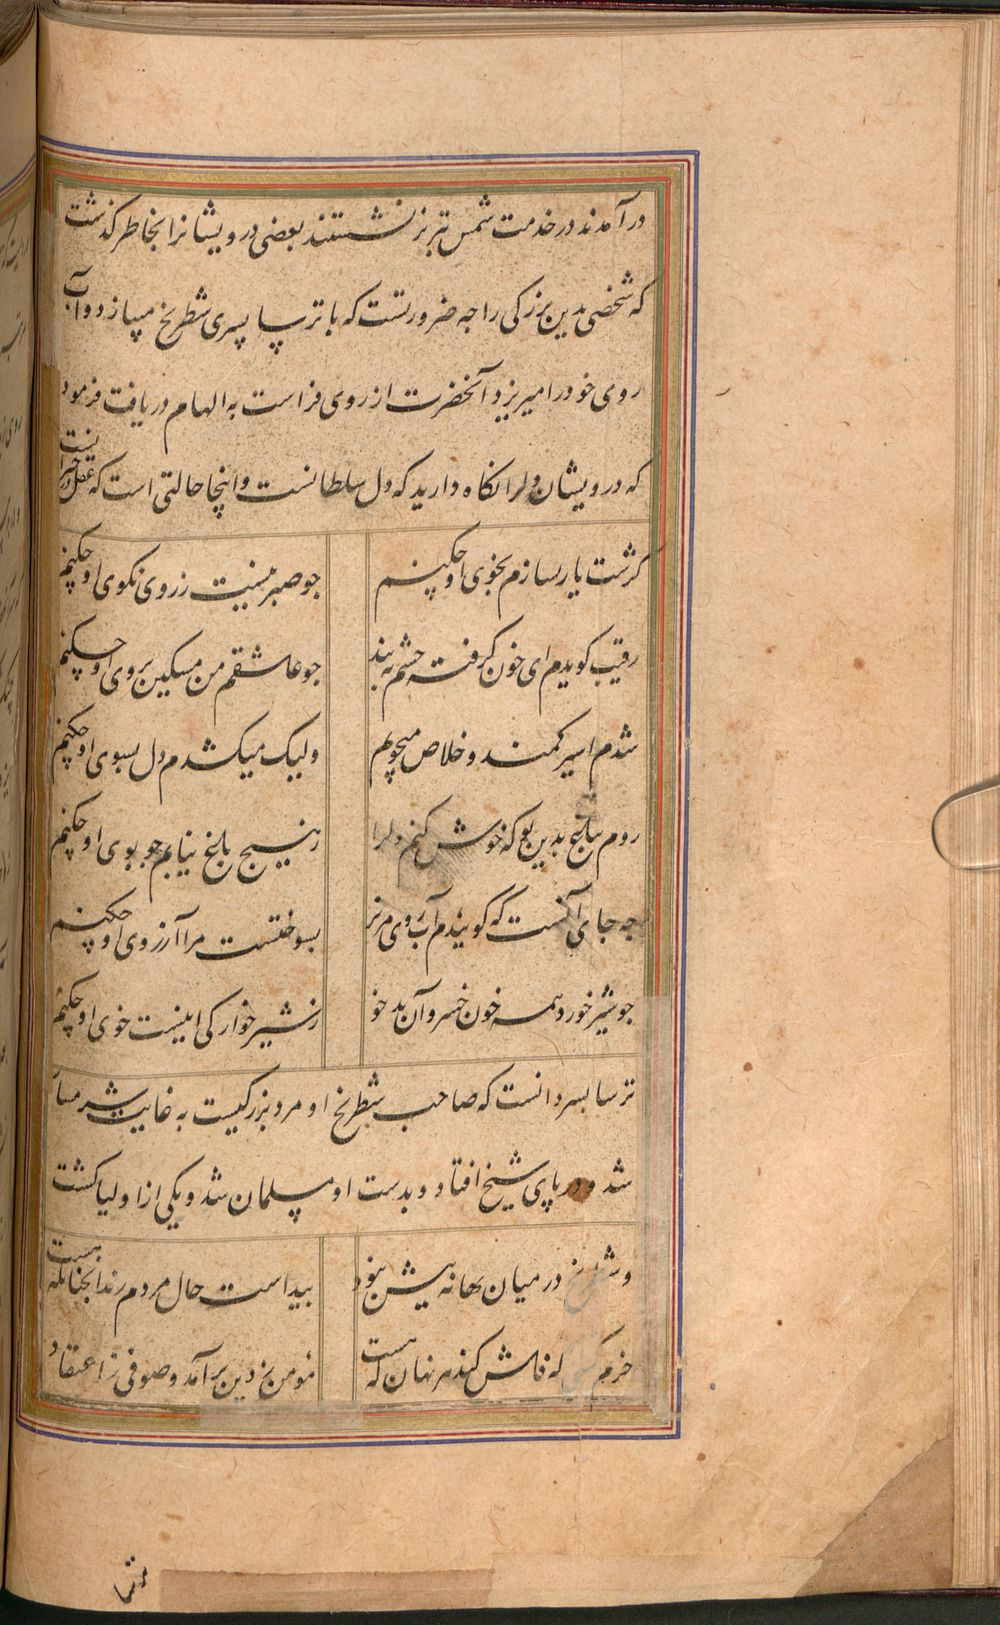 در آمدند در خدمت شمس تبریز نشستند بعضی درویشانرا بخاطر گذشت
که شخصی بدین بزرکی را جه ضرورتست که با ترسا پسری شطرنج میبازد و آب
روی خود را میریزد آنحضرت از روی فراست به الهام دریافت فرمود
که درویشان دلرا نکاه دارید که دل سلطانست و اینجا حالتی است که عقل را خبر نیست
کرشت یار بسازم بخوی او چکنم جو صبر نیست ز روی نکوی او چکنم
رقیب کویدم ای خون کرفته چشم به بند جو عاشقم من مسکین بروی او چکنم
شدم اسیر کمند و خلاص میجویم ولیک میکشدم دل بسوی او چکنم
روم بباغ بدین بو که خوش کنم دلرا ز هیچ باغ نیابم جو بوی او چکنم
جه جای آنست که کویندم آب روی مریز بسوختست مرا آرزوی او چکنم
جو شیر خورد همه خون خسرو آن بدخو ز شیرخوارکی اینست خوی او چکنم
ترسا بسر دانست که صاحب شطرنج او مرد بزرکیست به غایت شرمسار
شد و در پای شیخ افتاد و بدست او مسلمان شد و یکی از اولیا کشت
و شطرنج در میان بهانه بیش نبود بیداست حال مردم رند انجنانکه هست
خرم که فاش کند هر نهان که هست مومن ز دین برآمد و صوفی ز اعتقاد
ترسا